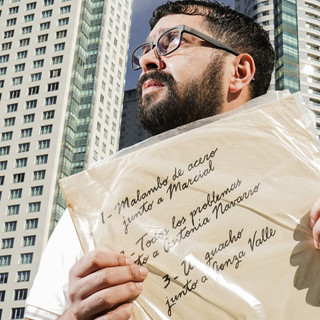 1- Malambo de acero
junto a Marcial
2- Todos los problemas
junto a Antonia Navarro
3- Te guacho
junto a Gonza Valle